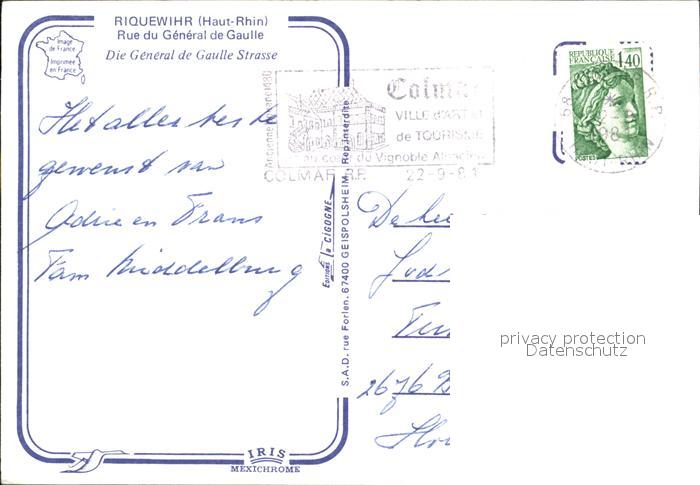 RIQUEWIHR (Haut-Rhin)
Rue du Général de Gaulle
Die Général de Gaulle Strasse
Image
de France
Imprimée
en France
Het allerbeste
gewenst van
Adrie en Frans
Fam Middelburg
Colmar
VILLE d'ART et
de TOURISME
au cœur du Vignoble Alsacien
COLMAR R.P.
22-9-81
REPUBLIQUE
FRANÇAISE
1,40
POSTES
Editions la CIGOGNE
S.A.D. rue Forlen. 67400 GEISPOLSHEIM - Repr. interdite
De heer
2676 B
privacy protection
Datenschutz
IRIS
MEXICHROME